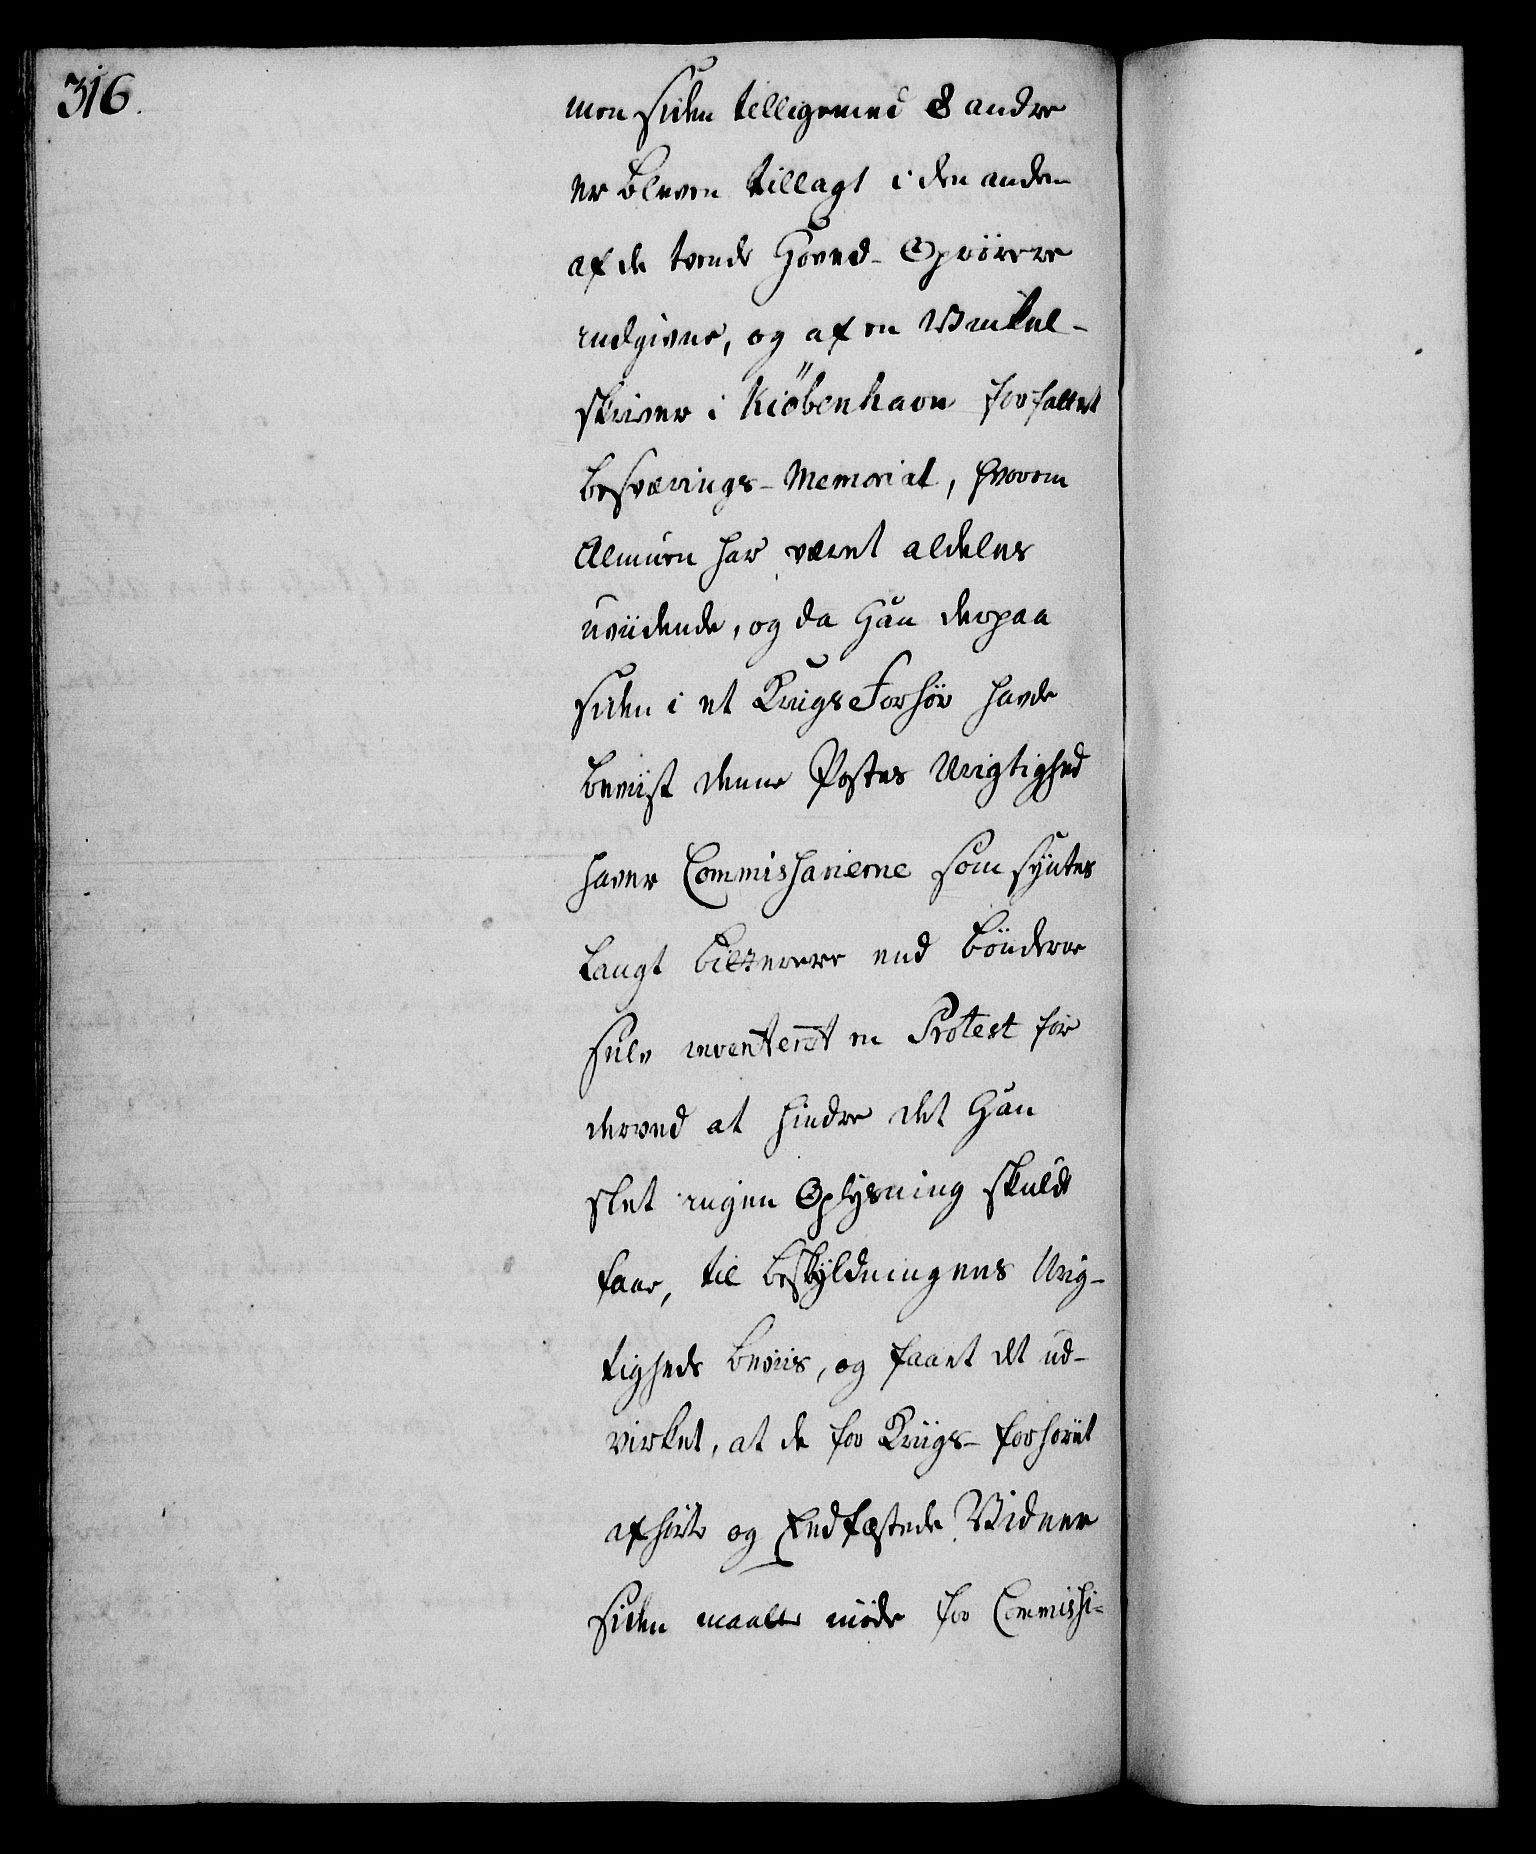 316.
men siden tilligemed 8 andre
er bleven tillagt i den anden
af de tvende Hoved-Oprörere
indgivne, og af en Vinkel-
skriver i Kiöbenhavn forfattet
besværings-Memorial, hvorom
Almuen har været aldeles
uviidende, og da Han derpaa
siden i et Krigs Forhör havde
beviist denne Postes Urigtighed
haver Commissarierne som syntes
langt bitterere end bönderne
selv inventeret en Protest for
derved at hindre det Han
slet ingen Oplysning skulde
faae, til beskyldningens Urig-
tigheds beviis, og faaet det ud-
virket, at de for Krigs-forhöret
afhörte og Eedfæstede Vidner
siden maatte möde for Commissi-